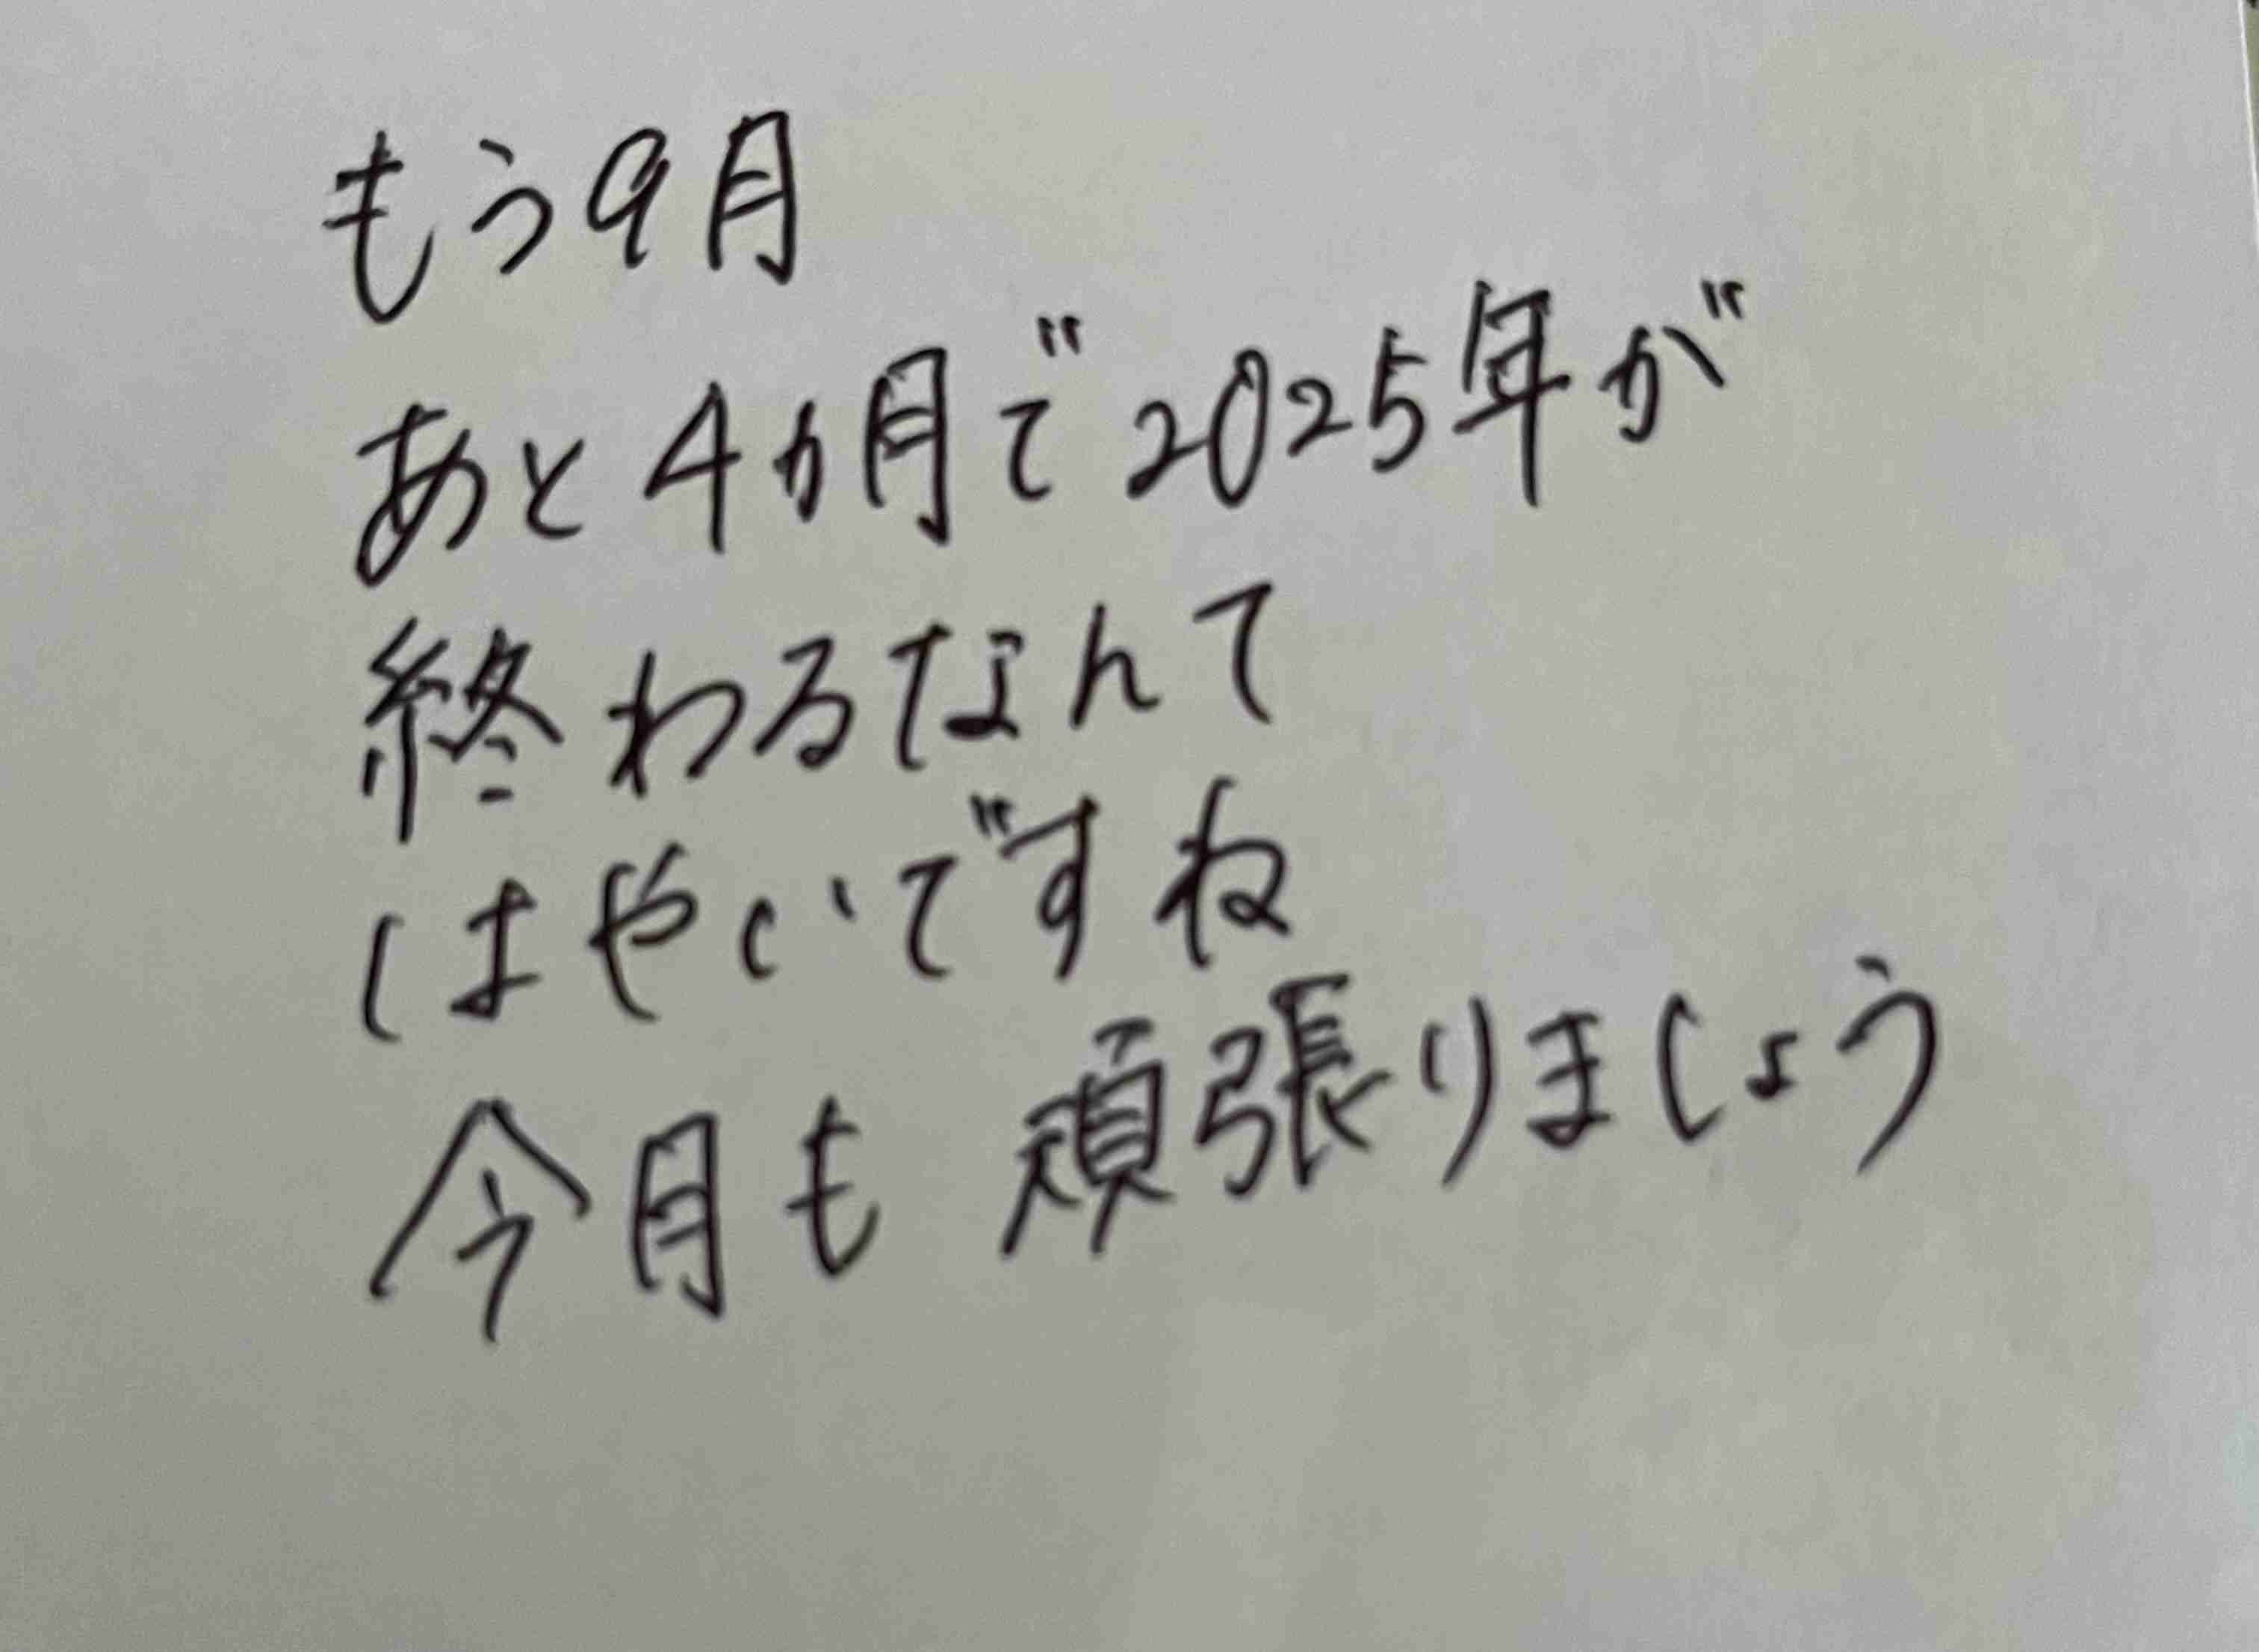 もう9月
あと4か月で2025年が
終わるなんて
はやいですね
今月も頑張りましょう